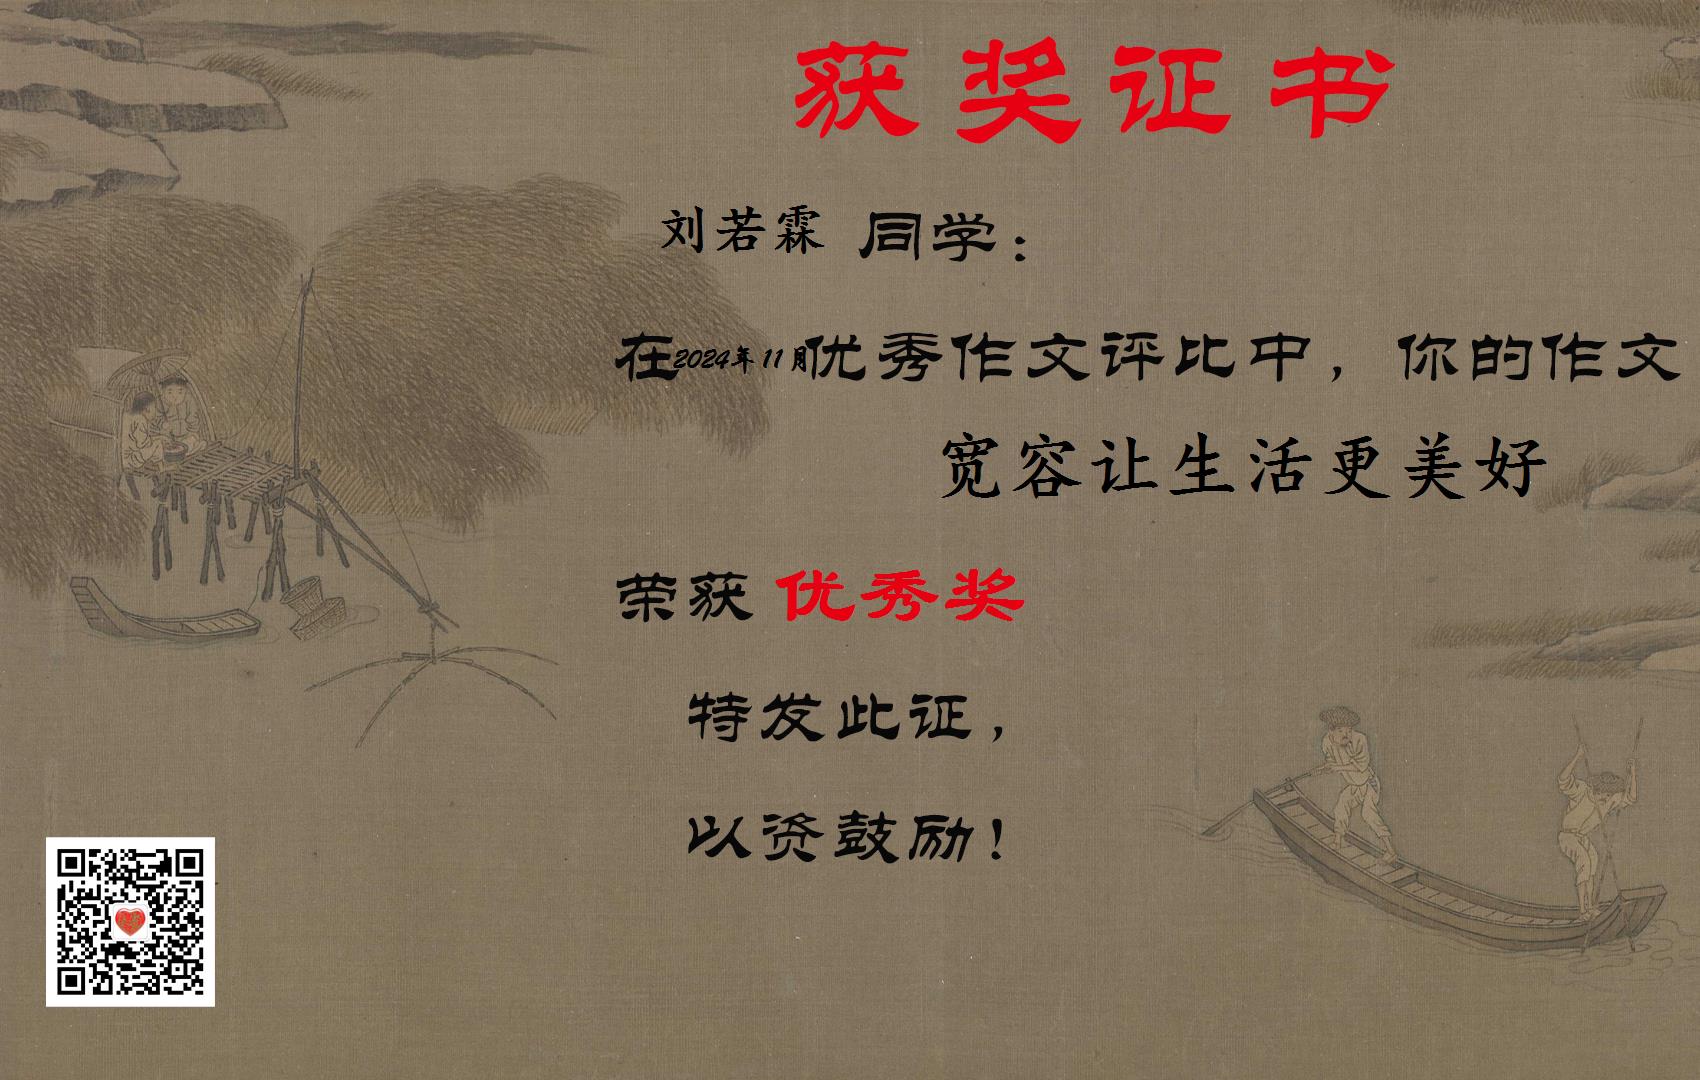 获奖证书
刘若霖 同学：
在2024年11月优秀作文评比中，你的作文
宽容让生活更美好
荣获 优秀奖
特发此证，
以资鼓励！